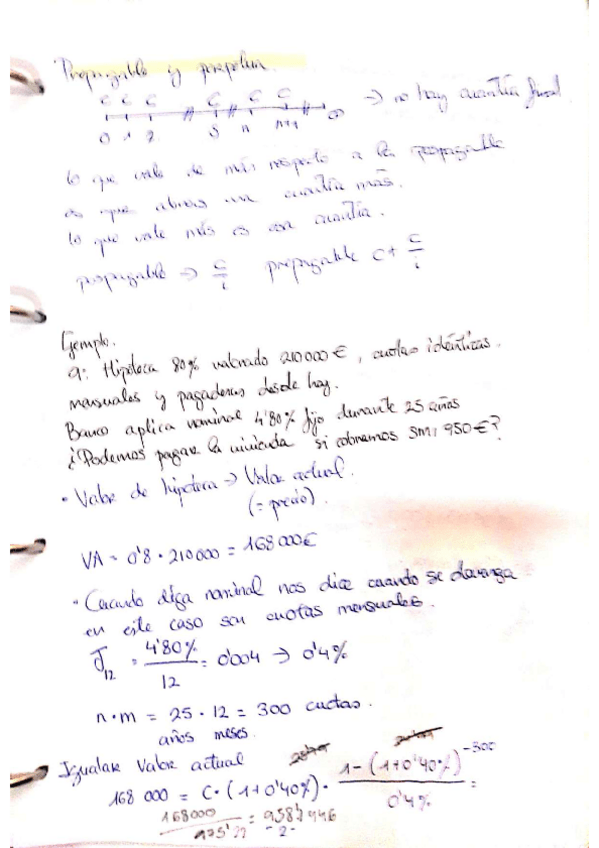 Propagable y prepolen.
C C C C C C
0 1 2 S n n+1 ∞ → no hay cuantía final
lo que vale de más respecto a la pospagable
es que abonas una cuantía más.
lo que vale más es esa cuantía.
pospagable → C/i prepagable C + C/i
Ejemplo.
a: Hipoteca 80% valorado 210000 €, cuotas idénticas.
mensuales y pagaderas desde hoy.
Banco aplica nominal 4'80% fijo durante 25 años
¿Podemos pagar la vivienda si cobramos SMI 950 €?
• Valor de hipoteca → Valor actual.
(= precio).
VA = 0'8 · 210000 = 168000€
• Cuando diga nominal nos dice cuando se devenga
en este caso son cuotas mensuales.
J12 = 4'80% / 12 = 0'004 → 0'4%
n·m = 25 · 12 = 300 cuotas.
años meses.
Igualar Valor actual
168 000 = C · (1+0'40%) · 1-(1+0'40%)^-300 / 0'4% =
168000